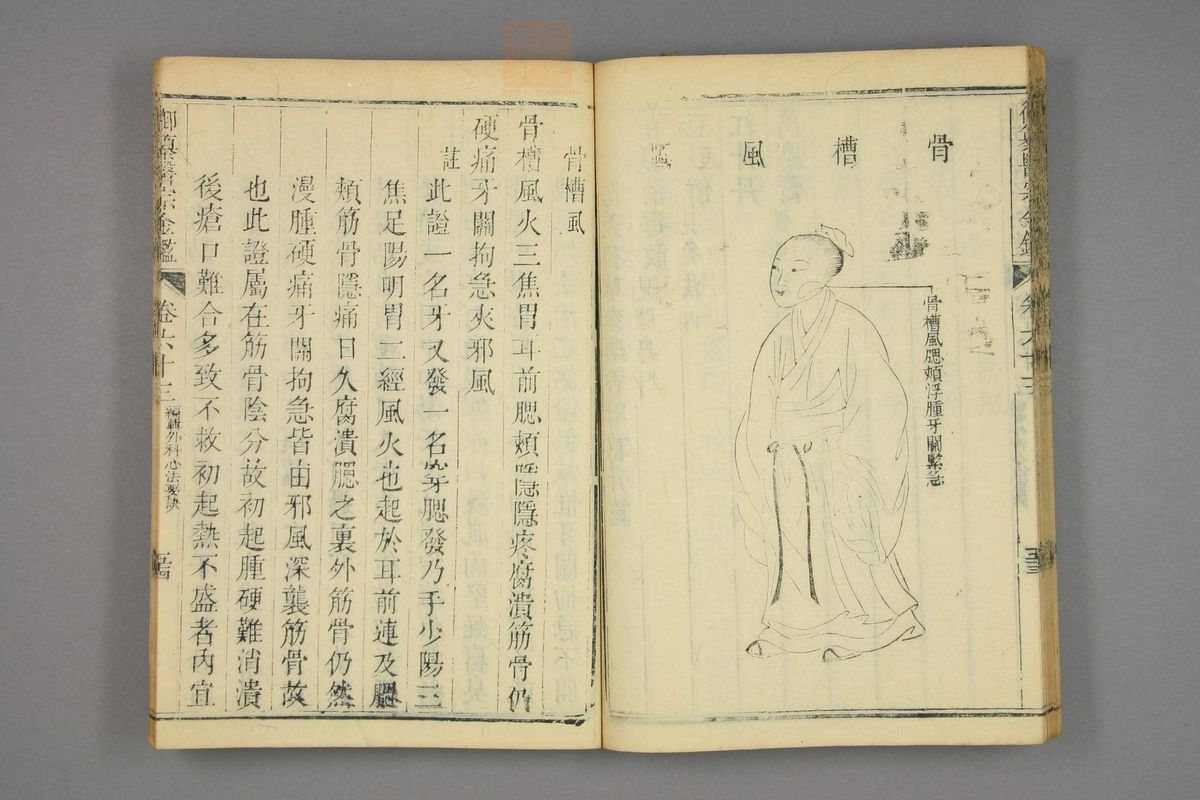 骨槽風
骨槽風腮頰浮腫牙關緊急
卷六十三
骨槽風
骨槽風火三焦胃耳前腮頰隱隱疼腐潰筋骨仍
硬痛牙關拘急夾邪風
註此證一名牙叉發一名穿腮發乃手少陽三
焦足陽明胃二經風火也起於耳前連及腮
頰筋骨隱痛日久腐潰腮之裏外筋骨仍然
漫腫硬痛牙關拘急皆由邪風深襲筋骨故
也此證屬在筋骨陰分故初起腫硬難消潰
後瘡口難合多致不救初起熱不盛者內宜
御纂醫宗金鑑
卷六十三
編輯外科心法要訣